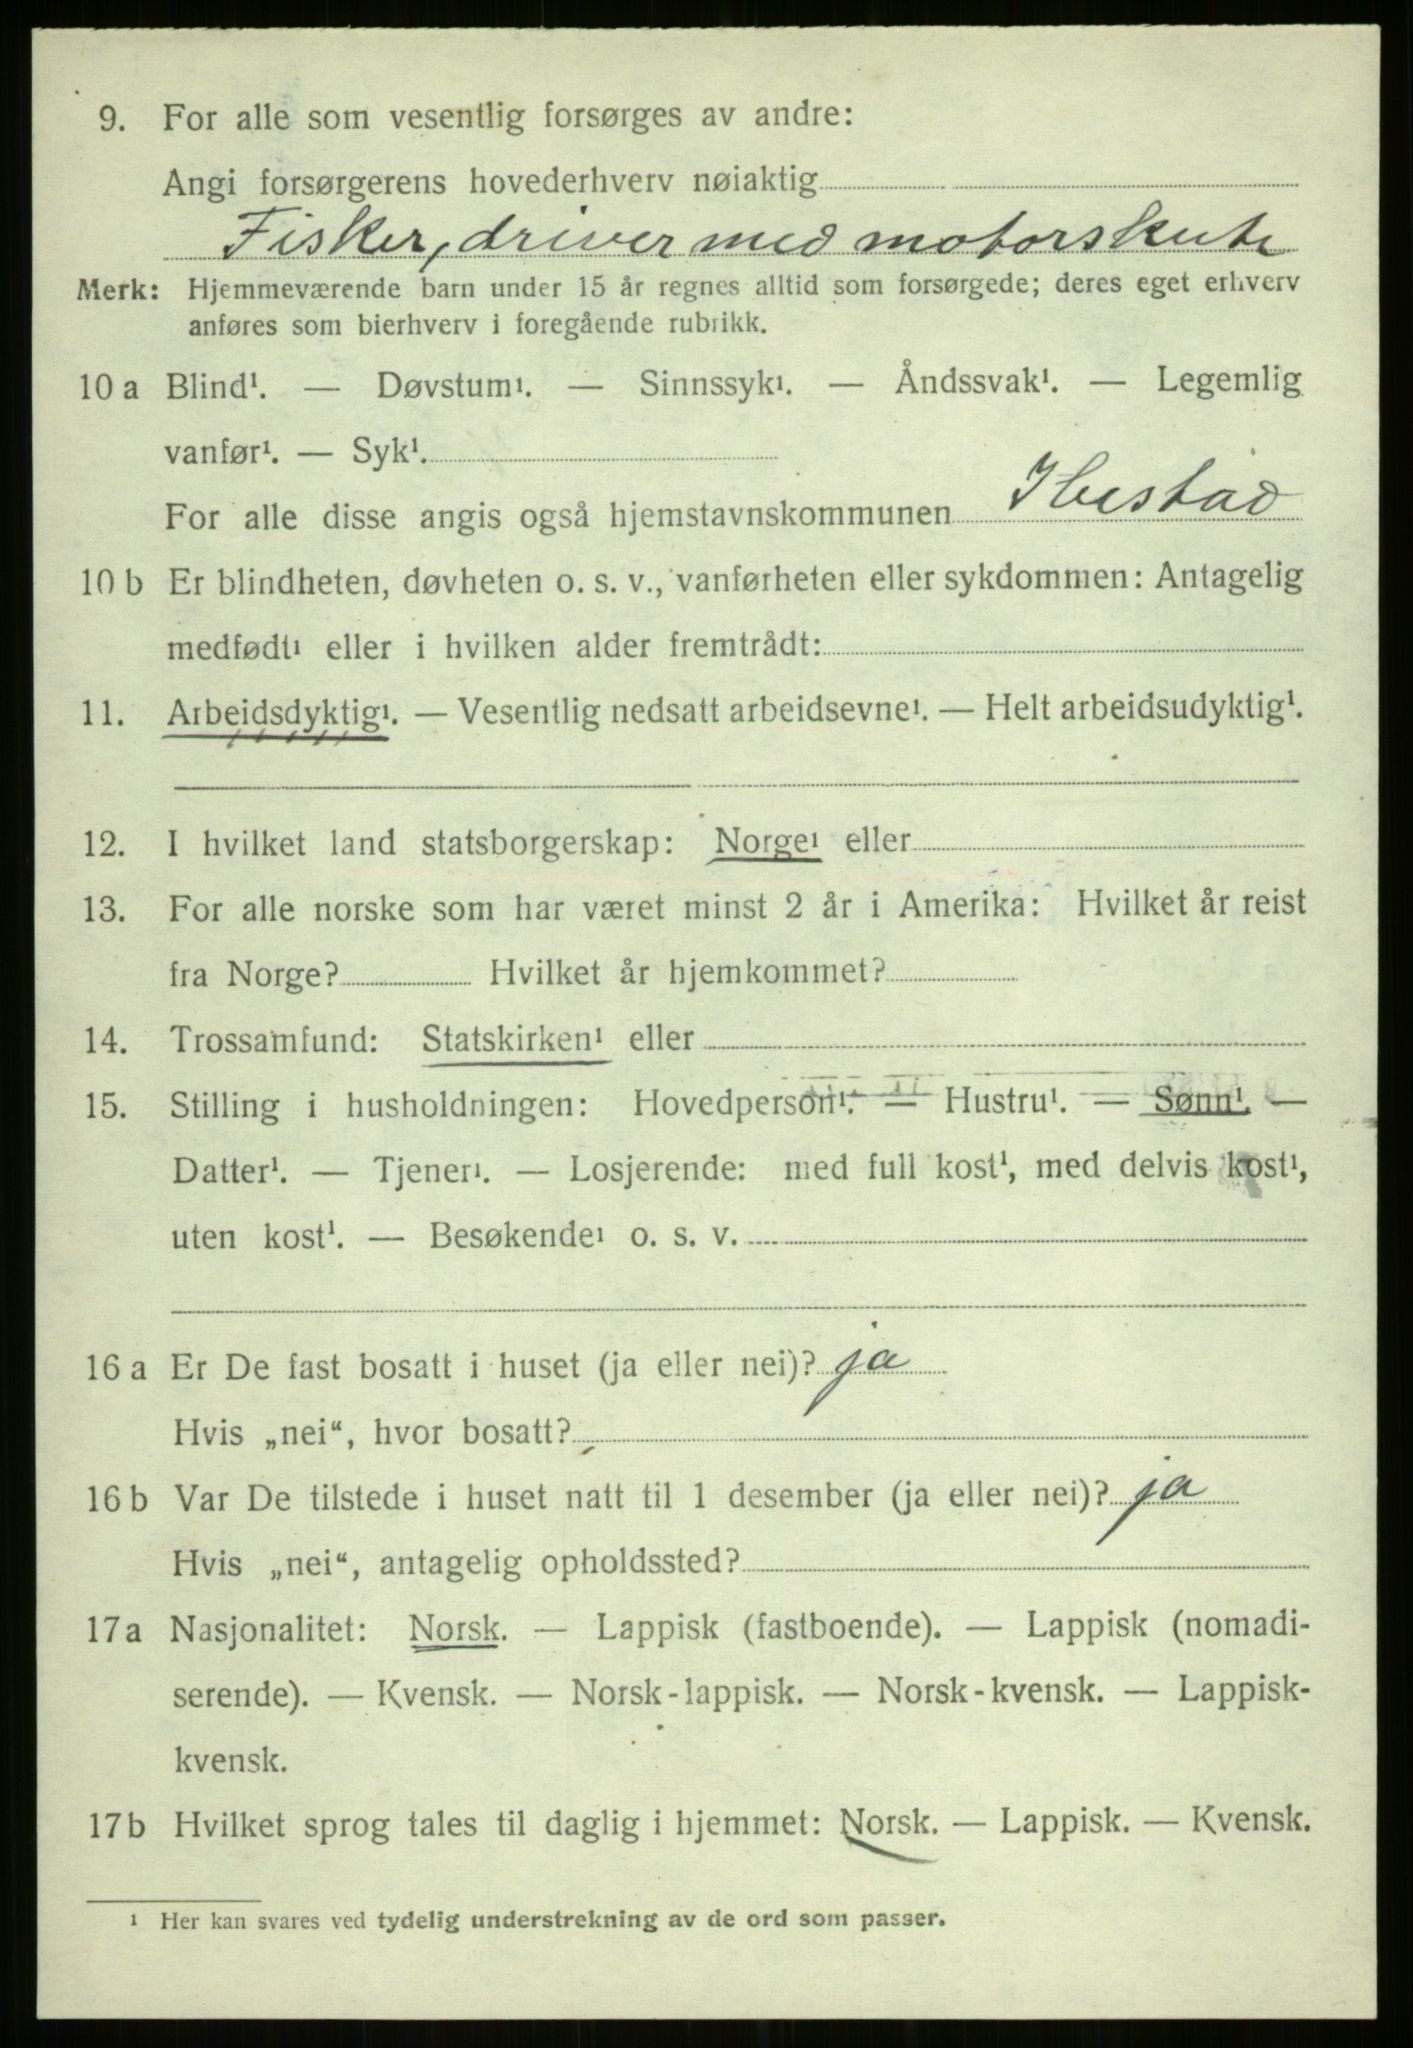 9. For alle som vesentlig forsørges av andre:
Angi forsørgerens hovederhverv nøiaktig
Fisker, driver med motorskute
Merk: Hjemmeværende barn under 15 år regnes alltid som forsørgede; deres eget erhverv
anføres som bierhverv i foregående rubrikk.
10 a Blind¹. — Døvstum¹. — Sinnssyk¹. — Åndssvak¹. — Legemlig
vanfør¹. — Syk¹.
For alle disse angis også hjemstavnskommunen Ibestad
10 b Er blindheten, døvheten o. s. v., vanførheten eller sykdommen: Antagelig
medfødt¹ eller i hvilken alder fremtrådt:
11. Arbeidsdyktig¹. — Vesentlig nedsatt arbeidsevne¹. — Helt arbeidsudyktig¹.
12. I hvilket land statsborgerskap: Norge¹ eller
13. For alle norske som har været minst 2 år i Amerika: Hvilket år reist
fra Norge? Hvilket år hjemkommet?
14. Trossamfund: Statskirken¹ eller
15. Stilling i husholdningen: Hovedperson¹. — Hustru¹. — Sønn¹. —
Datter¹. — Tjener¹. — Losjerende: med full kost¹, med delvis kost¹,
uten kost¹. — Besøkende¹ o. s. v.
16 a Er De fast bosatt i huset (ja eller nei)? ja
Hvis „nei“, hvor bosatt?
16 b Var De tilstede i huset natt til 1 desember (ja eller nei)? ja
Hvis „nei“, antagelig opholdssted?
17 a Nasjonalitet: Norsk. — Lappisk (fastboende). — Lappisk (nomadi-
serende). — Kvensk. — Norsk-lappisk. — Norsk-kvensk. — Lappisk-
kvensk.
17 b Hvilket sprog tales til daglig i hjemmet: Norsk. — Lappisk. — Kvensk.
¹ Her kan svares ved tydelig understrekning av de ord som passer.